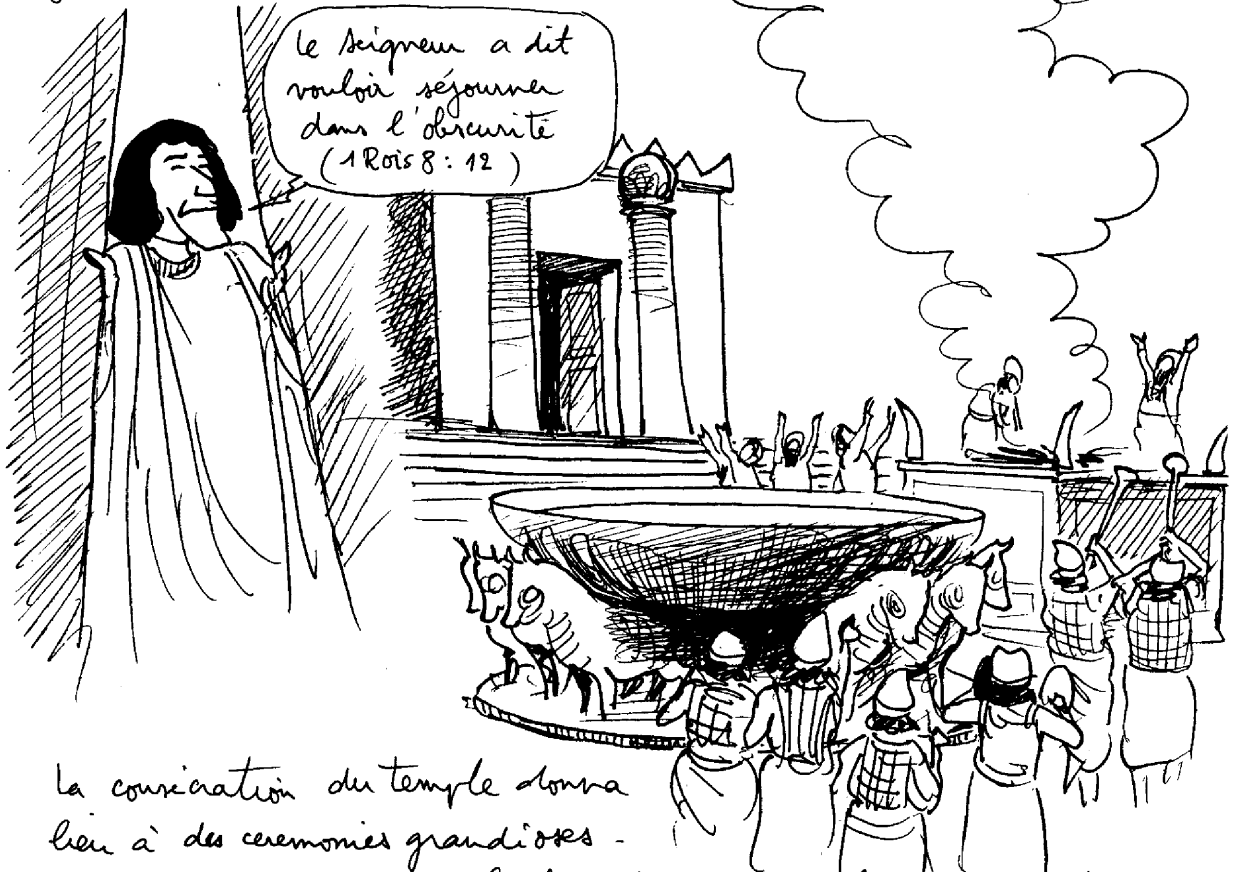 le seigneur a dit
vouloir séjourner
dans l'obscurité
(1 Rois 8 : 12 )
la consécration du temple donna
lieu à des ceremonies grandioses -